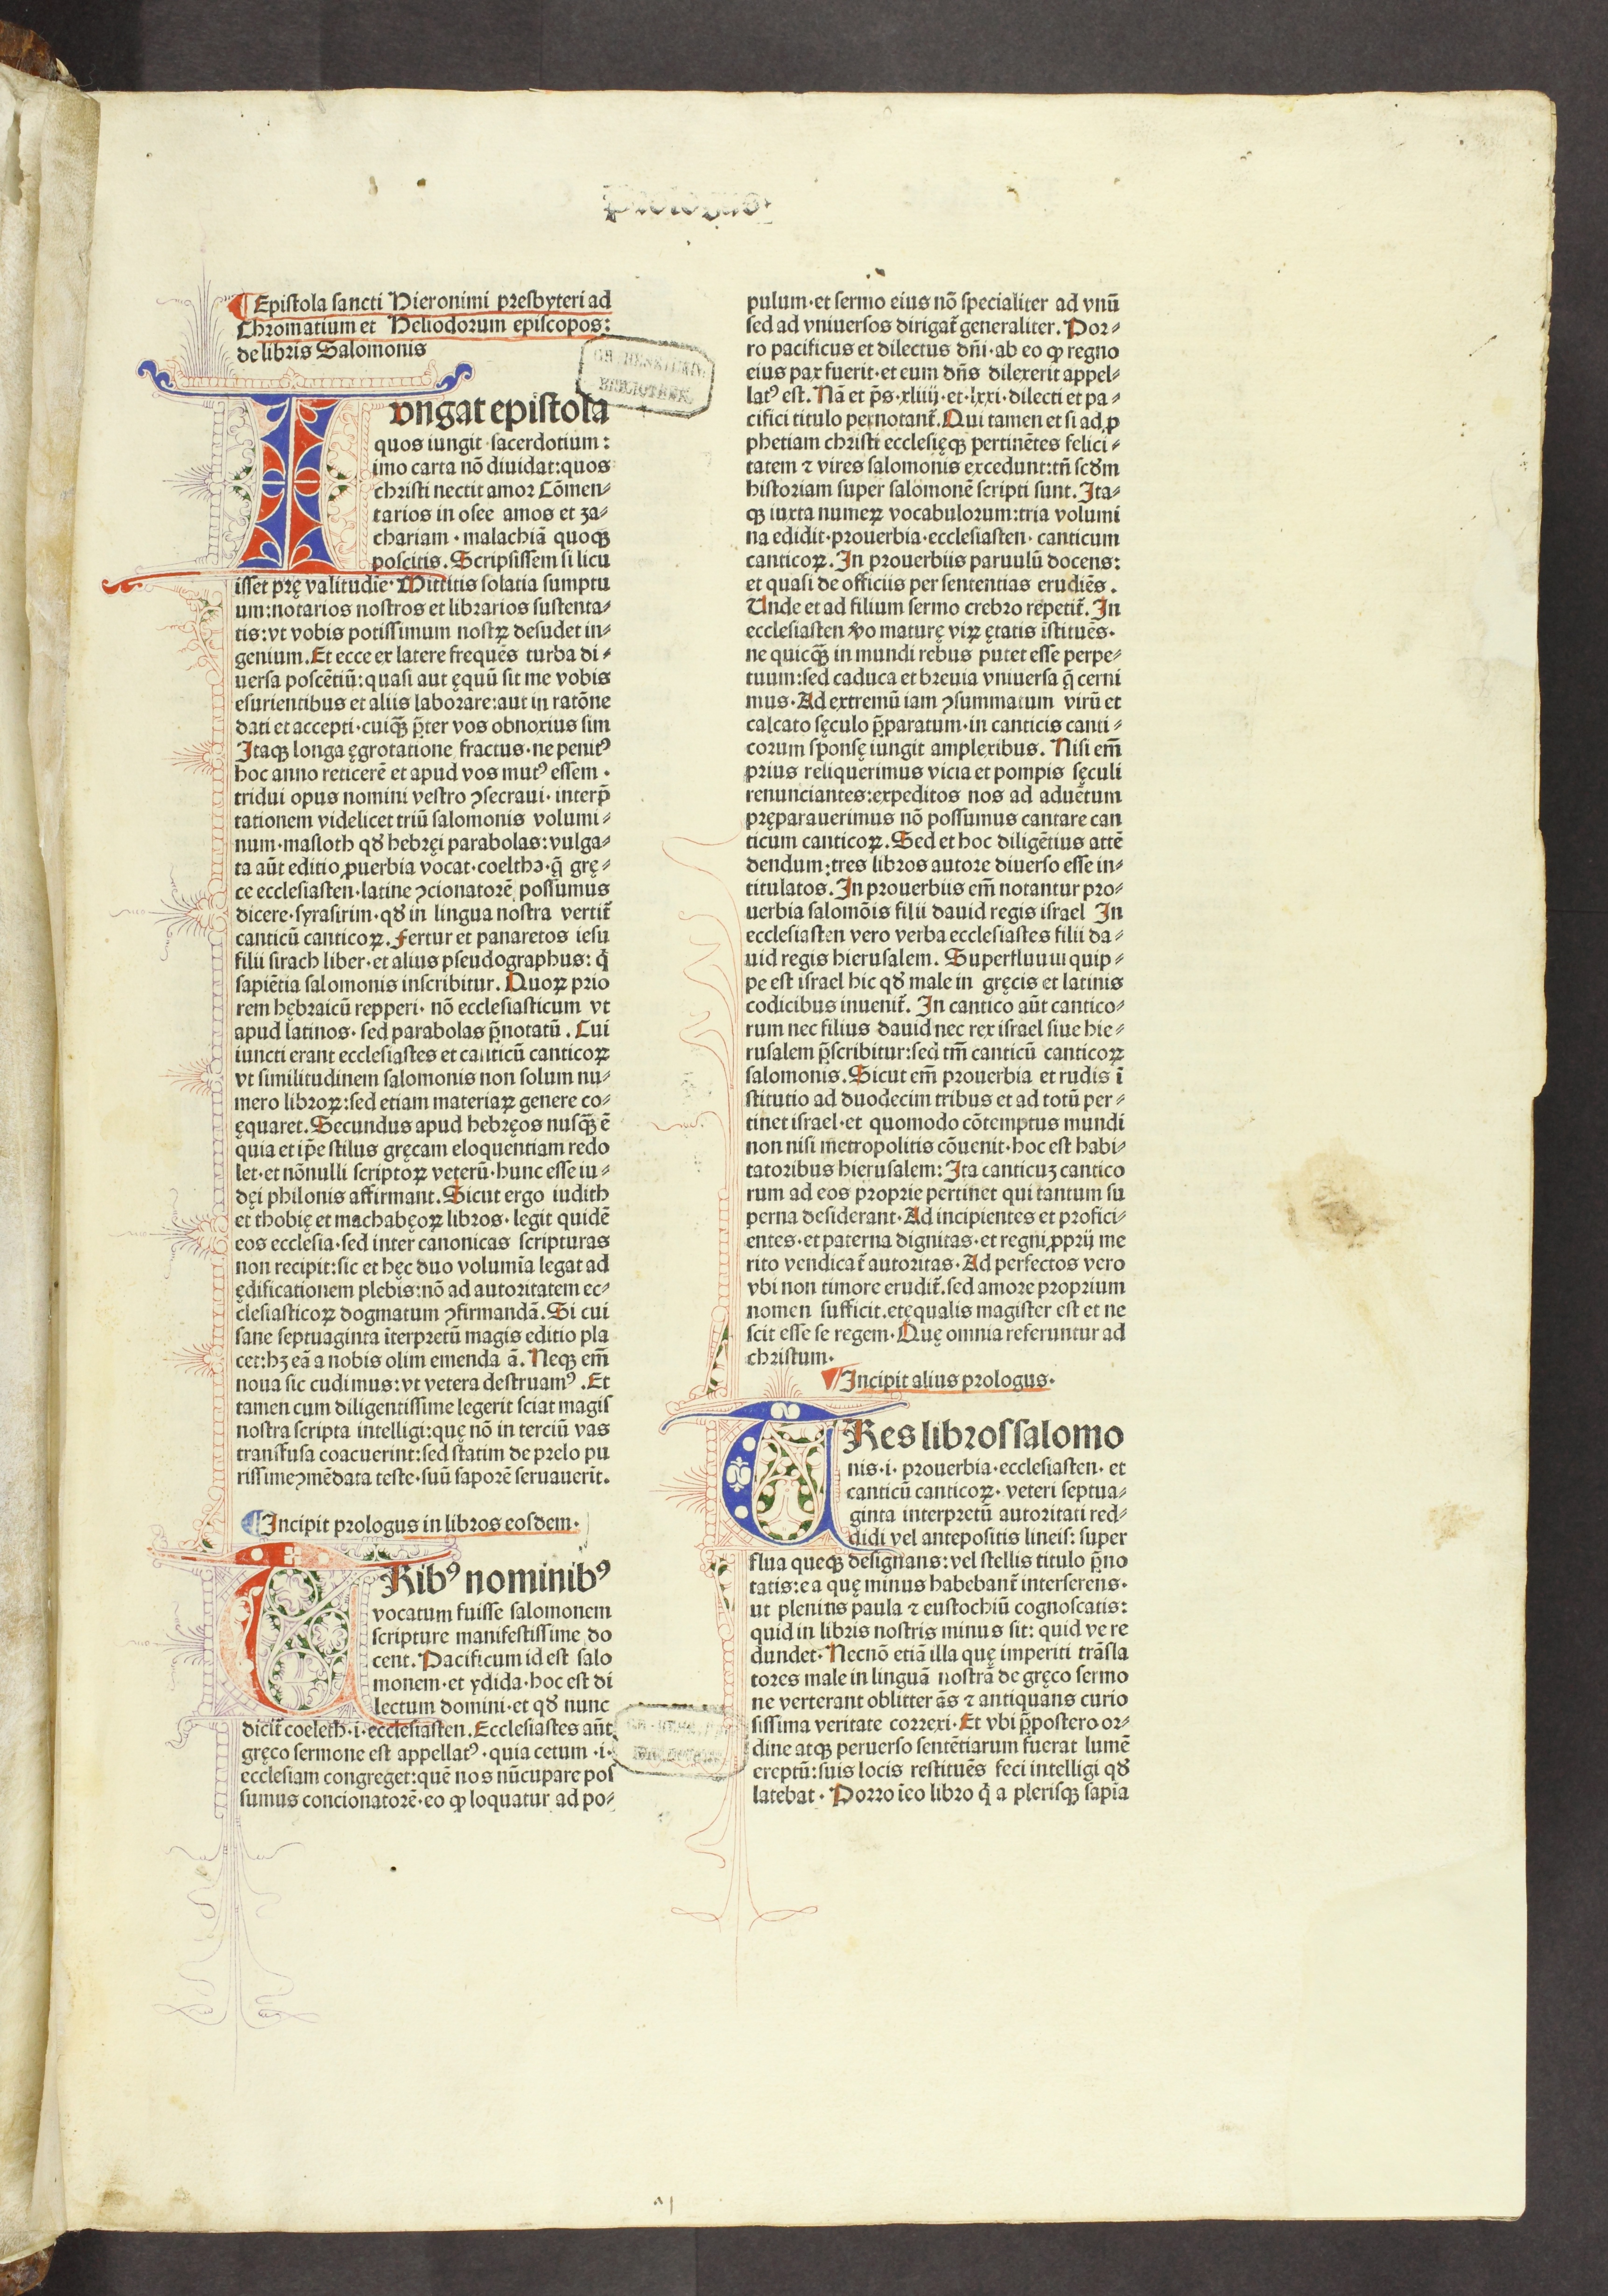 prologus
Epistola sancti Hieronimi presbyteri ad
Chromatium et Heliodorum episcopos:
de libris Salomonis
Iungat epistola
quos iungit sacerdotium:
imo carta nõ diuidat:quos
christi nectit amor Cõmen⸗
tarios in osee amos et za⸗
chariam · malachiã quoqꝫ
poscitis. Scripsissem si licu
isset prę valitudiē· Mittitis solatia sumptu
um:notarios nostros et librarios sustenta⸗
tis:vt vobis potissimum nostꝝ desudet in⸗
genium.Et ecce ex latere frequẽs turba di⸗
uersa poscẽtiũ:quasi aut ęquũ sit me vobis
esurientibus et aliis laborare:aut in ratõne
dati et accepti·cuiqꝫ̃ p̃ter vos obnoxius sim
Itaqꝫ longa ęgrotatione fractus·ne penitꝰ
hoc anno reticerẽ et apud vos mutꝰ essem·
tridui opus nomini vestro ꝯsecraui·interp̃
tationem videlicet triũ salomonis volumi⸗
num·masloth qđ hebręi parabolas:vulga⸗
ta aũt editio ꝓuerbia vocat·coelthꝫ·q̃ grę⸗
ce ecclesiasten·latine ꝯcionatorẽ possumus
dicere·syrasirim·qđ in lingua nostra vertit̃
canticũ canticoꝝ.Fertur et panaretos iesu
filii sirach liber·et alius pseudographus:q̇
sapiẽtia salomonis inscribitur.Quoꝝ prio
rem hębraicũ repperi· nõ ecclesiasticum vt
apud latinos·sed parabolas p̃notatũ.Cui
iuncti erant ecclesiastes et canticũ canticoꝝ
vt similitudinem salomonis non solum nu⸗
mero libroꝝ:sed etiam materiaꝝ genere co⸗
ęquaret.Secundus apud hebręos nusqꝫ̃ ẽ
quia et ip̃e stilus gręcam eloquentiam redo
let·et nõnulli scriptoꝝ veterũ·hunc esse iu⸗
dęi philonis affirmant.Sicut ergo iudith
et thobię et machabęoꝝ libros·legit quidẽ
eos ecclesia·sed inter canonicas scripturas
non recipit:sic et hęc duo volumĩa legat ad
ędificationem plebis:nõ ad autoritatem ec⸗
clesiasticoꝝ dogmatum ꝯfirmandã.Si cui
sane septuaginta ĩterpretũ magis editio pla
cet:hꝫ eã a nobis olim emenda ã.Neqꝫ em̃
noua sic cudimus:vt vetera destruamꝰ.Et
tamen cum diligentissime legerit sciat magis
nostra scripta intelligi:quę nõ in terciũ vas
transfusa coacuerint:sed statim de prelo pu
rissimeꝯmẽdata teste·suũ saporẽ seruauerĩt.
Incipit prologus in libros eosdem·
TRibꝰ nominibꝰ
vocatum fuisse salomonem
scripture manifestissime do
cent.Pacificum id est salo
monem·et ydida·hoc est di
lectum domini·et qđ nunc
dicit̃ coeleth·i·ecclesiasten.Ecclesiastes aũt
gręco sermone est appellatꝰ·quia cetum ·i·
ecclesiam congreget:quẽ nos nũcupare pos
sumus concionatorẽ·eo ꝙ loquatur ad po⸗
pulum·et sermo eius nõ specialiter ad vnũ
sed ad vniuersos dirigat̃ generaliter. Por⸗
ro pacificus et dilectus dñi·ab eo ꝙ regno
eius pax fuerit·et eum dñs dilexerit appel⸗
latꝰ est. Nã et p̃s·xliiij·et·lxxi·dilecti et pa⸗
cifici titulo pernotant̃.Qui tamen et si ad ꝓ
phetiam christi ecclesięqꝫ pertinẽtes felici⸗
tatem ⁊ vires salomonis excedunt:tñ scđm
historiam super salomonẽ scripti sunt. Ita⸗
qꝫ iuxta numeꝝ vocabulorum:tria volumi
na edidit·prouerbia·ecclesiasten·canticum
canticoꝝ. In prouerbiis paruulũ docens:
et quasi de officiis per sententias erudiẽs.
Unde et ad filium sermo crebro repetit̃. In
ecclesiasten v̾o maturę viꝝ ętatis ĩstituẽs·
ne quicqꝫ̃ in mundi rebus putet esse perpe⸗
tuum:sed caduca et breuia vniuersa q̨̃ cerni
mus·Ad extremũ iam ꝯsummatum virũ et
calcato sęculo p̃paratum·in canticis canti⸗
corum sponsę iungit amplexibus. Nisi em̃
prius reliquerimus vicia et pompis sęculi
renunciantes:expeditos nos ad aduẽtum
pręparauerimus nõ possumus cantare can
ticum canticoꝝ. Sed et hoc diligẽtius attẽ
dendum:tres libros autore diuerso esse in⸗
titulatos. In prouerbiis em̃ notantur pro⸗
uerbia salomõis filii dauid regis israel In
ecclesiasten vero verba ecclesiastes filii da⸗
uid regis hierusalem. Superfluum quip⸗
pe est israel hic qđ male in gręcis et latinis
codicibus inuenit̃. In cantico aũt cantico⸗
rum nec filius dauid nec rex israel siue hie⸗
rusalem p̃scribitur:sed tm̃ canticũ canticoꝝ
salomonis. Sicut em̃ prouerbia et rudis ĩ
stitutio ad duodecim tribus et ad totũ per⸗
tinet israel·et quomodo cõtemptus mundi
non nisi metropolitis cõuenit·hoc est habi⸗
tatoribus hierusalem: Ita canticuꝫ cantico
rum ad eos proprie pertinet qui tantum su
perna desiderant·Ad incipientes et profici⸗
entes·et paterna dignitas·et regni ꝓprij me
rito vendicat̃ autoritas·Ad perfectos vero
vbi non timore erudit̃.sed amore proprium
nomen sufficit.et ęqualis magister est et ne
scit esse se regem·Quę omnia referuntur ad
christum.
Incipit alius prologus.
TRes libros salomo
nis·i·prouerbia·ecclesiasten·et
canticũ canticoꝝ·veteri septua⸗
ginta interpretũ autoritati red⸗
didi vel antepositis lineis: super
flua queqꝫ designans:vel stellis titulo p̃no
tatis:ea quę minus habebant̃ interserens·
ut plenius paula ⁊ eustochiũ cognoscatis:
quid in libris nostris minus sit: quid ve re
dundet·Necnõ etiã illa quę imperiti trãsla
tores male in linguã nostrã de gręco sermo
ne verterant oblitter ãs ⁊ antiquans curio
sissima veritate correxi·Et vbi p̃postero or⸗
dine atqꝫ peruerso sentẽtiarum fuerat lumẽ
ereptũ:suis locis restituẽs feci intelligi qđ
latebat·Porro ĩ eo libro q̇ a plerisqꝫ sapĩa